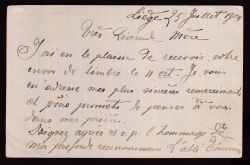 Liège, 25 Juillet 1904
Très Révérende Mère
J'ai eu le plaisir de recevoir votre
envoi de timbre le 11 ct. Je vous
en adresse mes plus sincères remerciements
et vous promets de penser à vous
dans mes prières.
Daignez agréer T. R. M. l'hommage de
ma profonde reconnaissance L'abbé